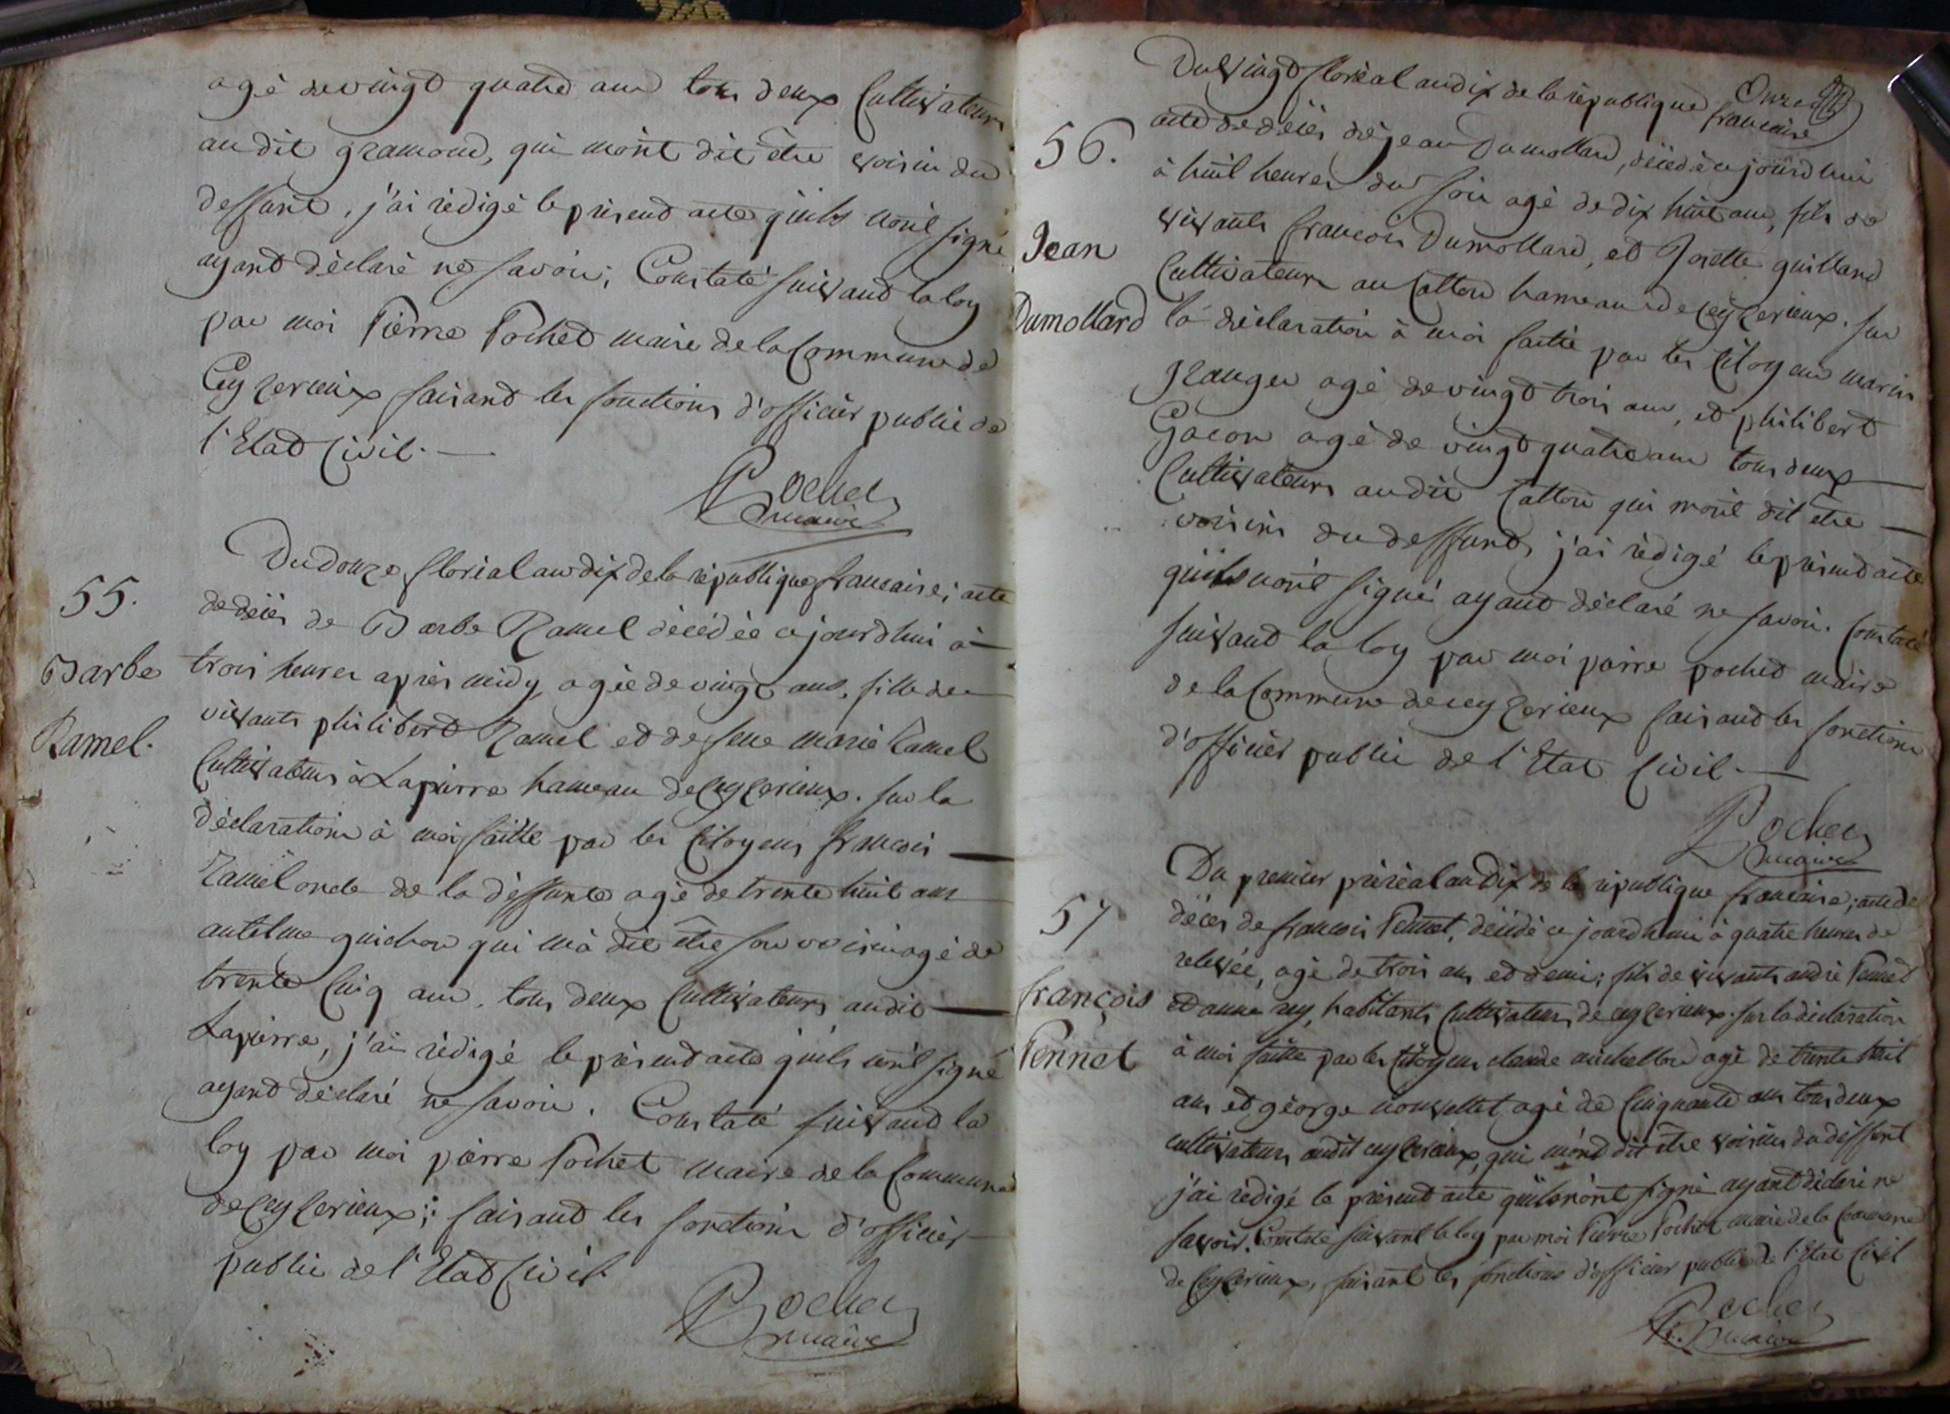 agé de vingt quatre ans tous deux Cultivateurs
au dit gramond, qui mont dit être voisin du
deffunt, j'ai rédigé le présent acte quils nont signé
ayant déclaré ne savoir; Constaté suivant la loy
par moi Pierre Pochet maire de la Commune de
Ceyzerieux faisant les fonctions d'officier public de
l'Etat Civil.
Pochet
maire
55.
Barbe
Ramel.
Du douze floréal an dix de la république francaise; acte
de décès de Barbe Ramel décédée cejourdhui à
trois heures après midy agée de vingt ans, fille de
vivants philibert Ramel et de feue marie Ramel
Cultivateurs à Lapierre hameau de Ceyzerieux. sur la
déclaration à moi faitte par les Citoyens francois
Ramel oncle de la déffunte agé de trente huit ans
antelme guichon qui m'a dit être son voisin agé de
trente Cinq ans. tous deux Cultivateurs audit
Lapierre, j'ai rédigé le présent acte quils nont signé
ayant déclaré ne savoir. Constaté suivant la
loy par moi pierre Pochet maire de la Commune
de Ceyzerieux; faisant les fonctions d'officier
public de l'Etat Civil.
Pochet
maire
Onze
Du Vingt floréal an dix de la république francaise
56.
Jean
Dumollard
acte de décès de jean Dumollard, décédé cejourdhui
à huit heures du soir agé de dix huit ans, fils de
vivants francois Dumollard, et Josette guilland
Cultivateurs au Catton hameau de Ceyzerieux. sur
la déclaration à moi faitte par les Citoyens marin
granger agé de vingt trois ans, et philibert
Gacon agé de vingt quatre ans tous deux
Cultivateurs audit Catton qui mont dit etre
voisins du deffunt, j'ai rédigé le présent acte
quils nont signé ayant déclaré ne savoir. Constaté
suivant la loy par moi pierre pochet maire
de la Commune de ceyzerieux faisant les fonctions
d'officier public de l'Etat Civil.
Pochet
maire
57
françois
Pennet
Du premier prérèal an Dix de la république francaise; acte de
décès de francois Pennet, décédé ce jourdhui à quatre heures de
relevée, agé de trois ans et demi; fils de vivants andré Pennet
et anne rey, habitants Cultivateurs de ceyzerieux. sur la déclaration
à moi faitte par les Citoyens claude michellon agé de trente huit
ans et george agé de Cinquante ans tous deux
cultivateurs audit ceyzerieux, qui m'ont dit etre voisins du déffunt
j'ai rédigé le présent acte quils n'ont signé ayant déclaré ne
savoir. Constaté suivant la loy par moi Pierre Pochet maire de la Commune
de Ceyzerieux, faisant les fonctions d'officier public de l'Etat Civil
Pochet
maire